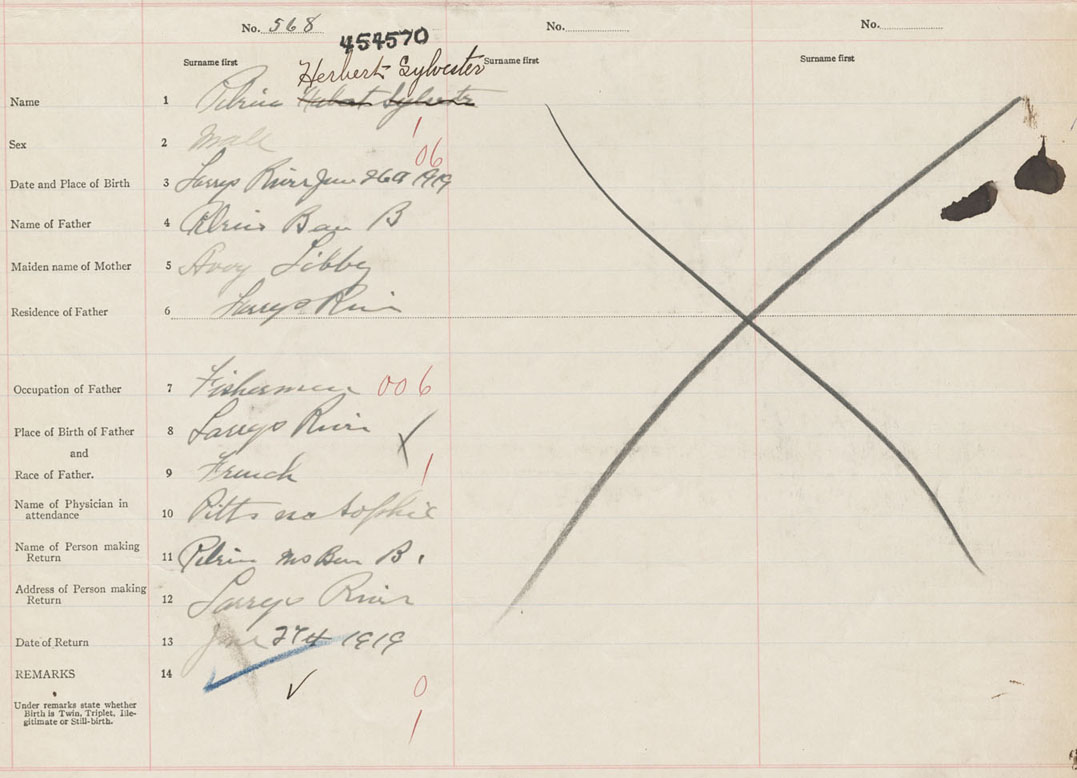 No. 568 No. No.
454570
Surname first Surname first Surname first
Herbert Sylvester
Name 1 Pelrine Hubert Sylvester
1
Sex 2 Male
06
Date and Place of Birth 3 Larrys River June 26th 1919
Name of Father 4 Pelrine Ben B
Maiden name of Mother 5 Avery Libby
Residence of Father 6 Larrys River
Occupation of Father 7 Fisherman 006
Place of Birth of Father 8 Larrys River
and
Race of Father. 9 French 1
Name of Physician in
attendance 10 Pitts Sophie
Name of Person making
Return 11 Pelrine Mrs Ben B.
Address of Person making
Return 12 Larrys River
Date of Return 13 June 27th 1919
REMARKS 14
0
Under remarks state whether
Birth is Twin, Triplet, Ille-
gitimate or Still-birth.
1